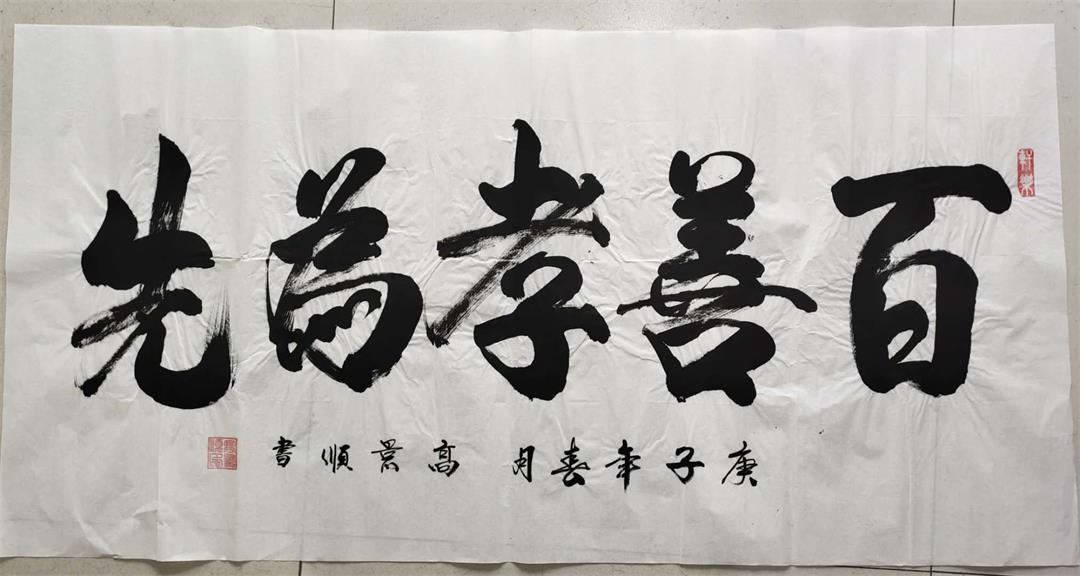 百善孝為先
庚子年春月 高景順書